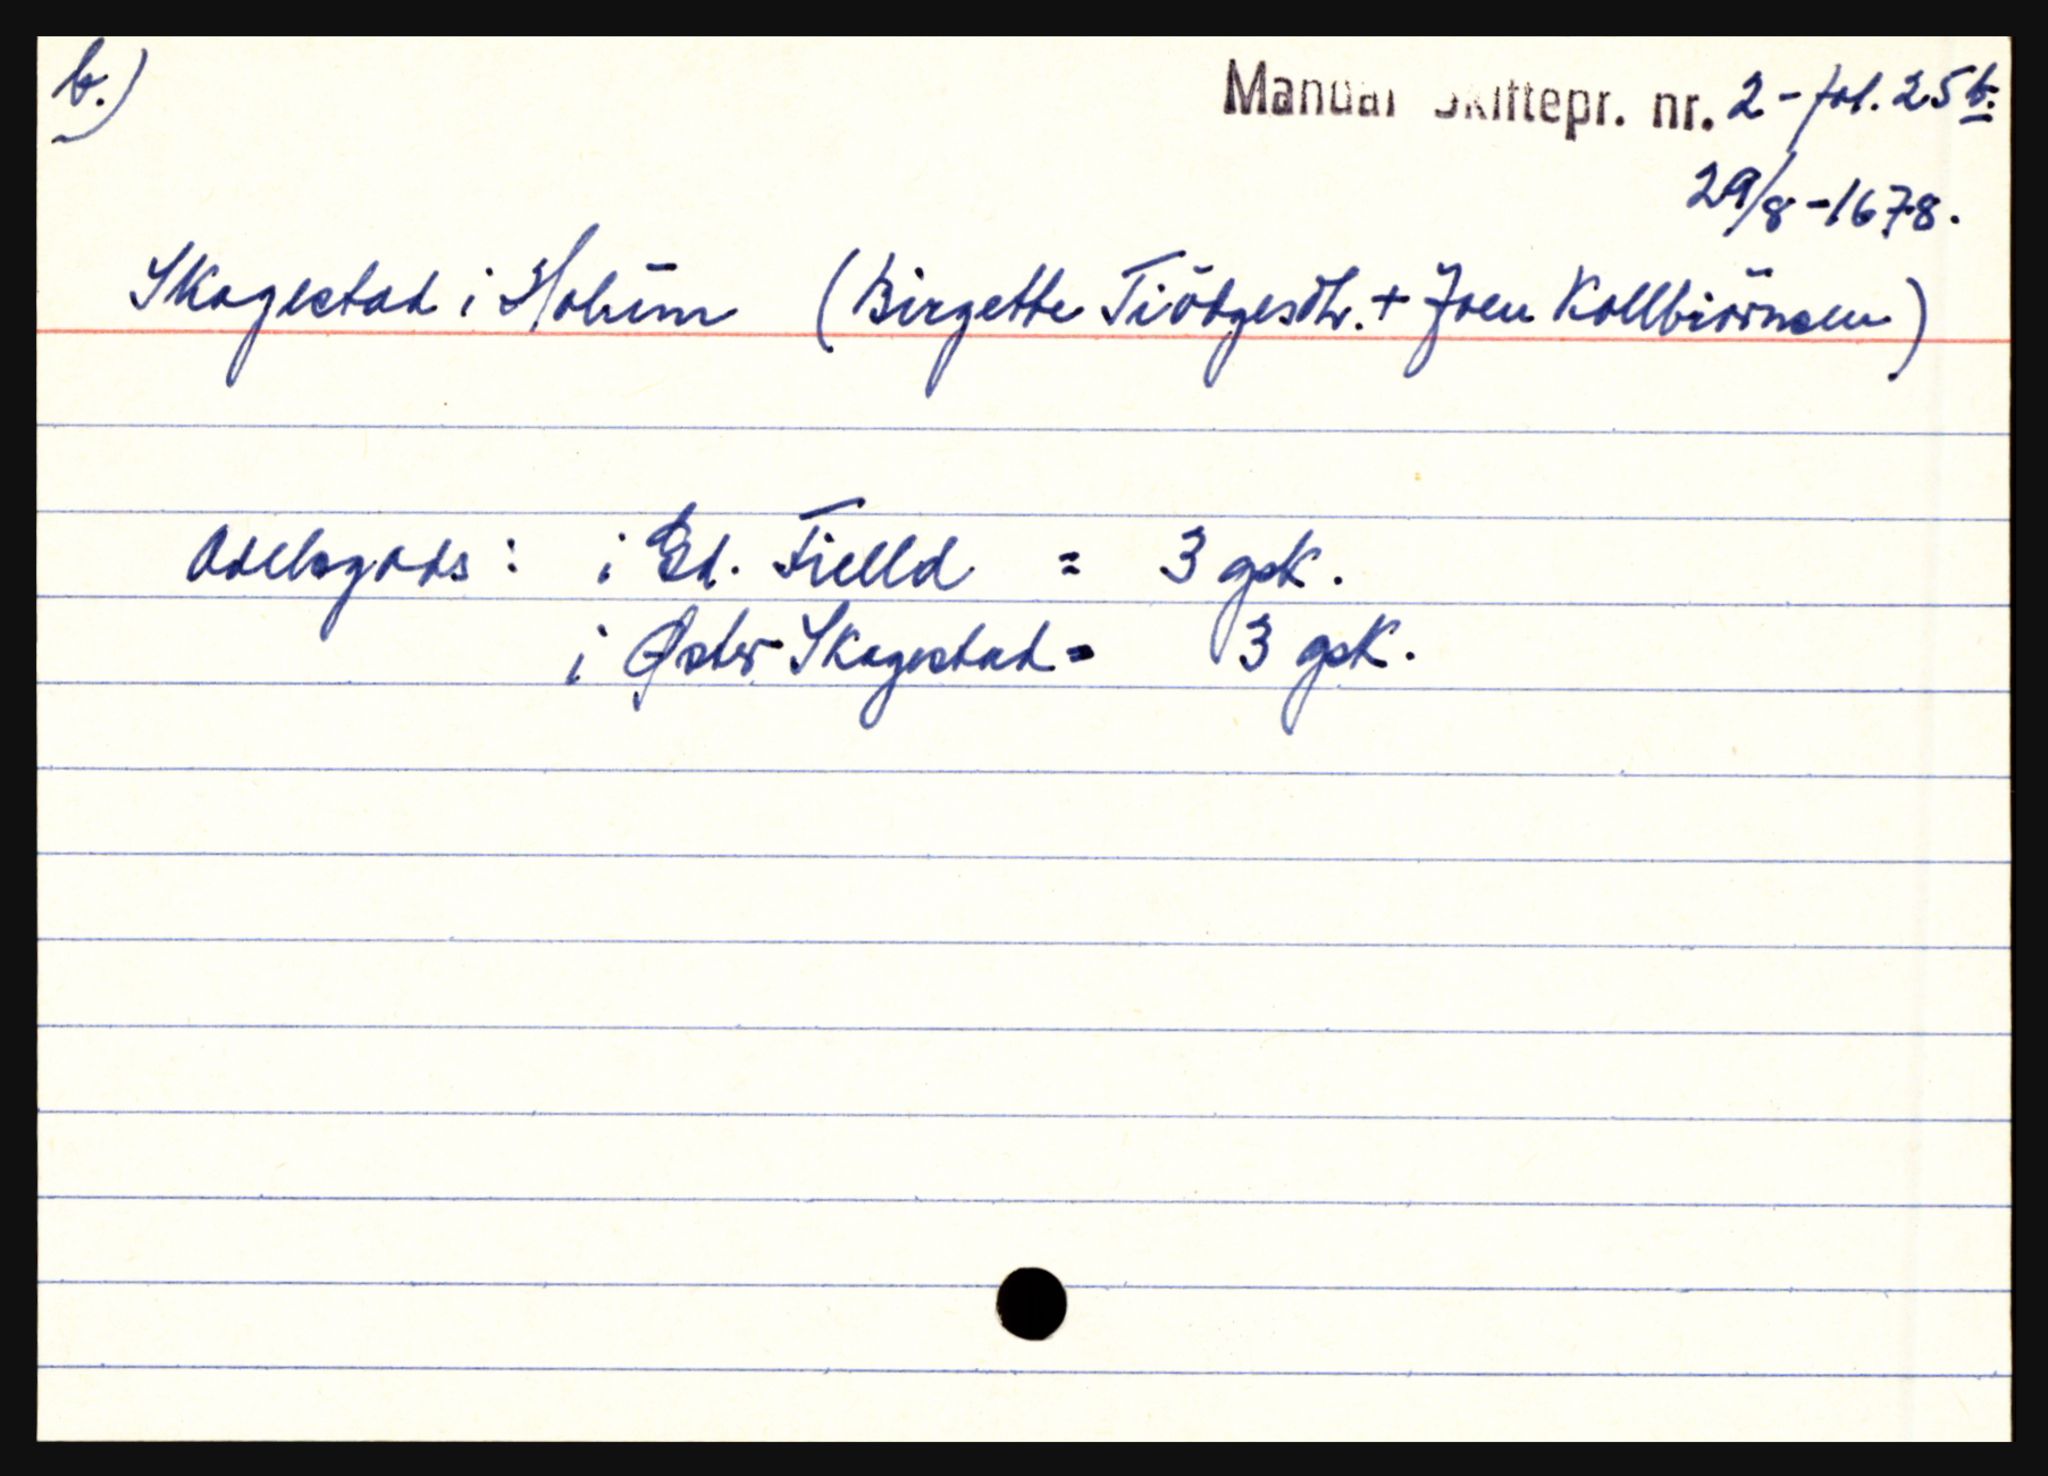 b.)
Mandal Skiftepr. nr. 2 - fol. 25b.
29/8-1678.
Skagestad i Holum (Birgette Tiödgesdtr. + Joen Kollbiörnsen)
Odelsgods: i Gd. Fielld = 3 gsk.
i Øster Skagestad = 3 gsk.